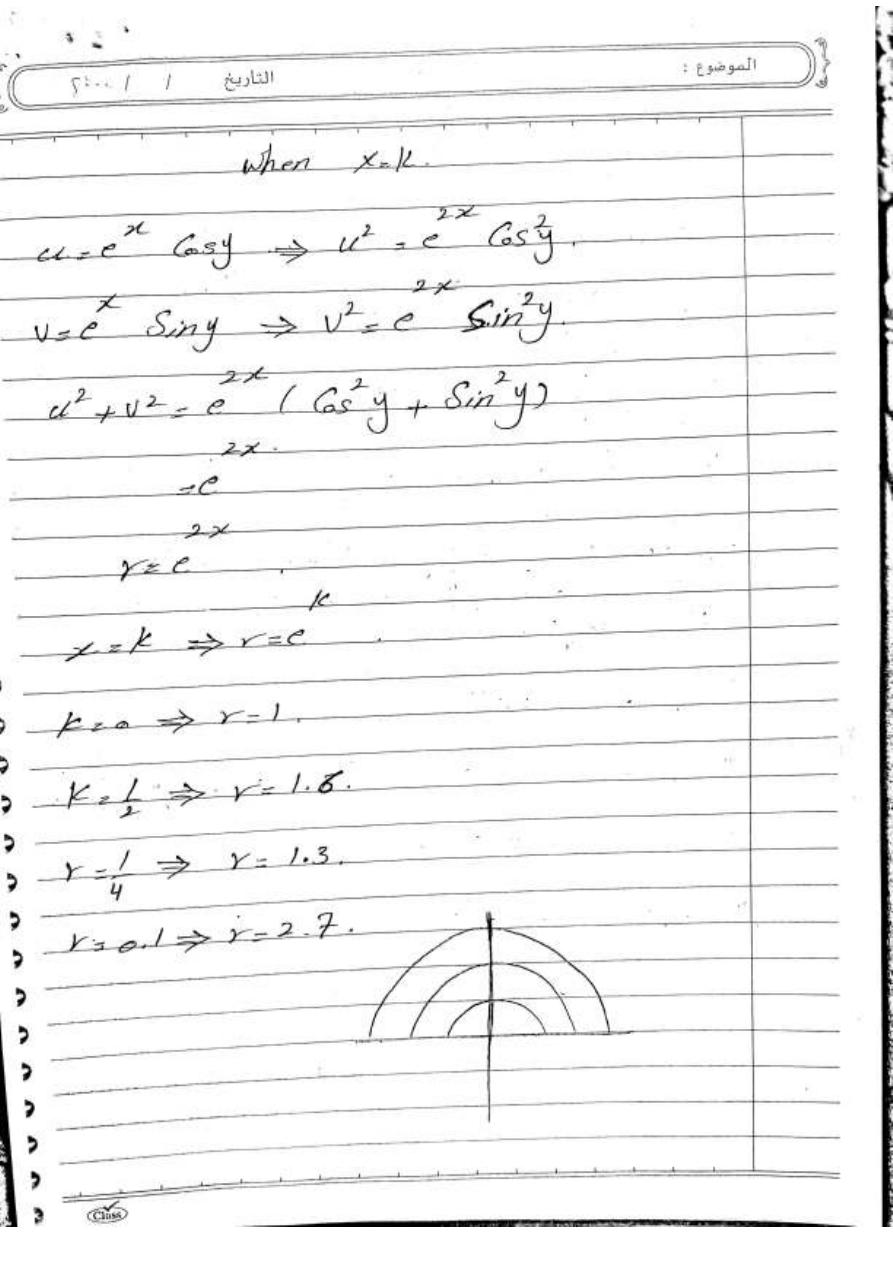 الموضوع : التاريخ / / ٢٠٠م
When x=k.
u=e^x Cosy ⇒ u² = e^2x Cos²y.
v=e^x Siny ⇒ v² = e^2x Sin²y.
u²+v² = e^2x (Cos²y + Sin²y)
=e^2x.
r=e^2x
x=k ⇒ r=e^k.
k=0 ⇒ r=1.
k=1/2 ⇒ r=1.6.
r=1/4 ⇒ r=1.3.
r=0.1 ⇒ r=2.7.
Class